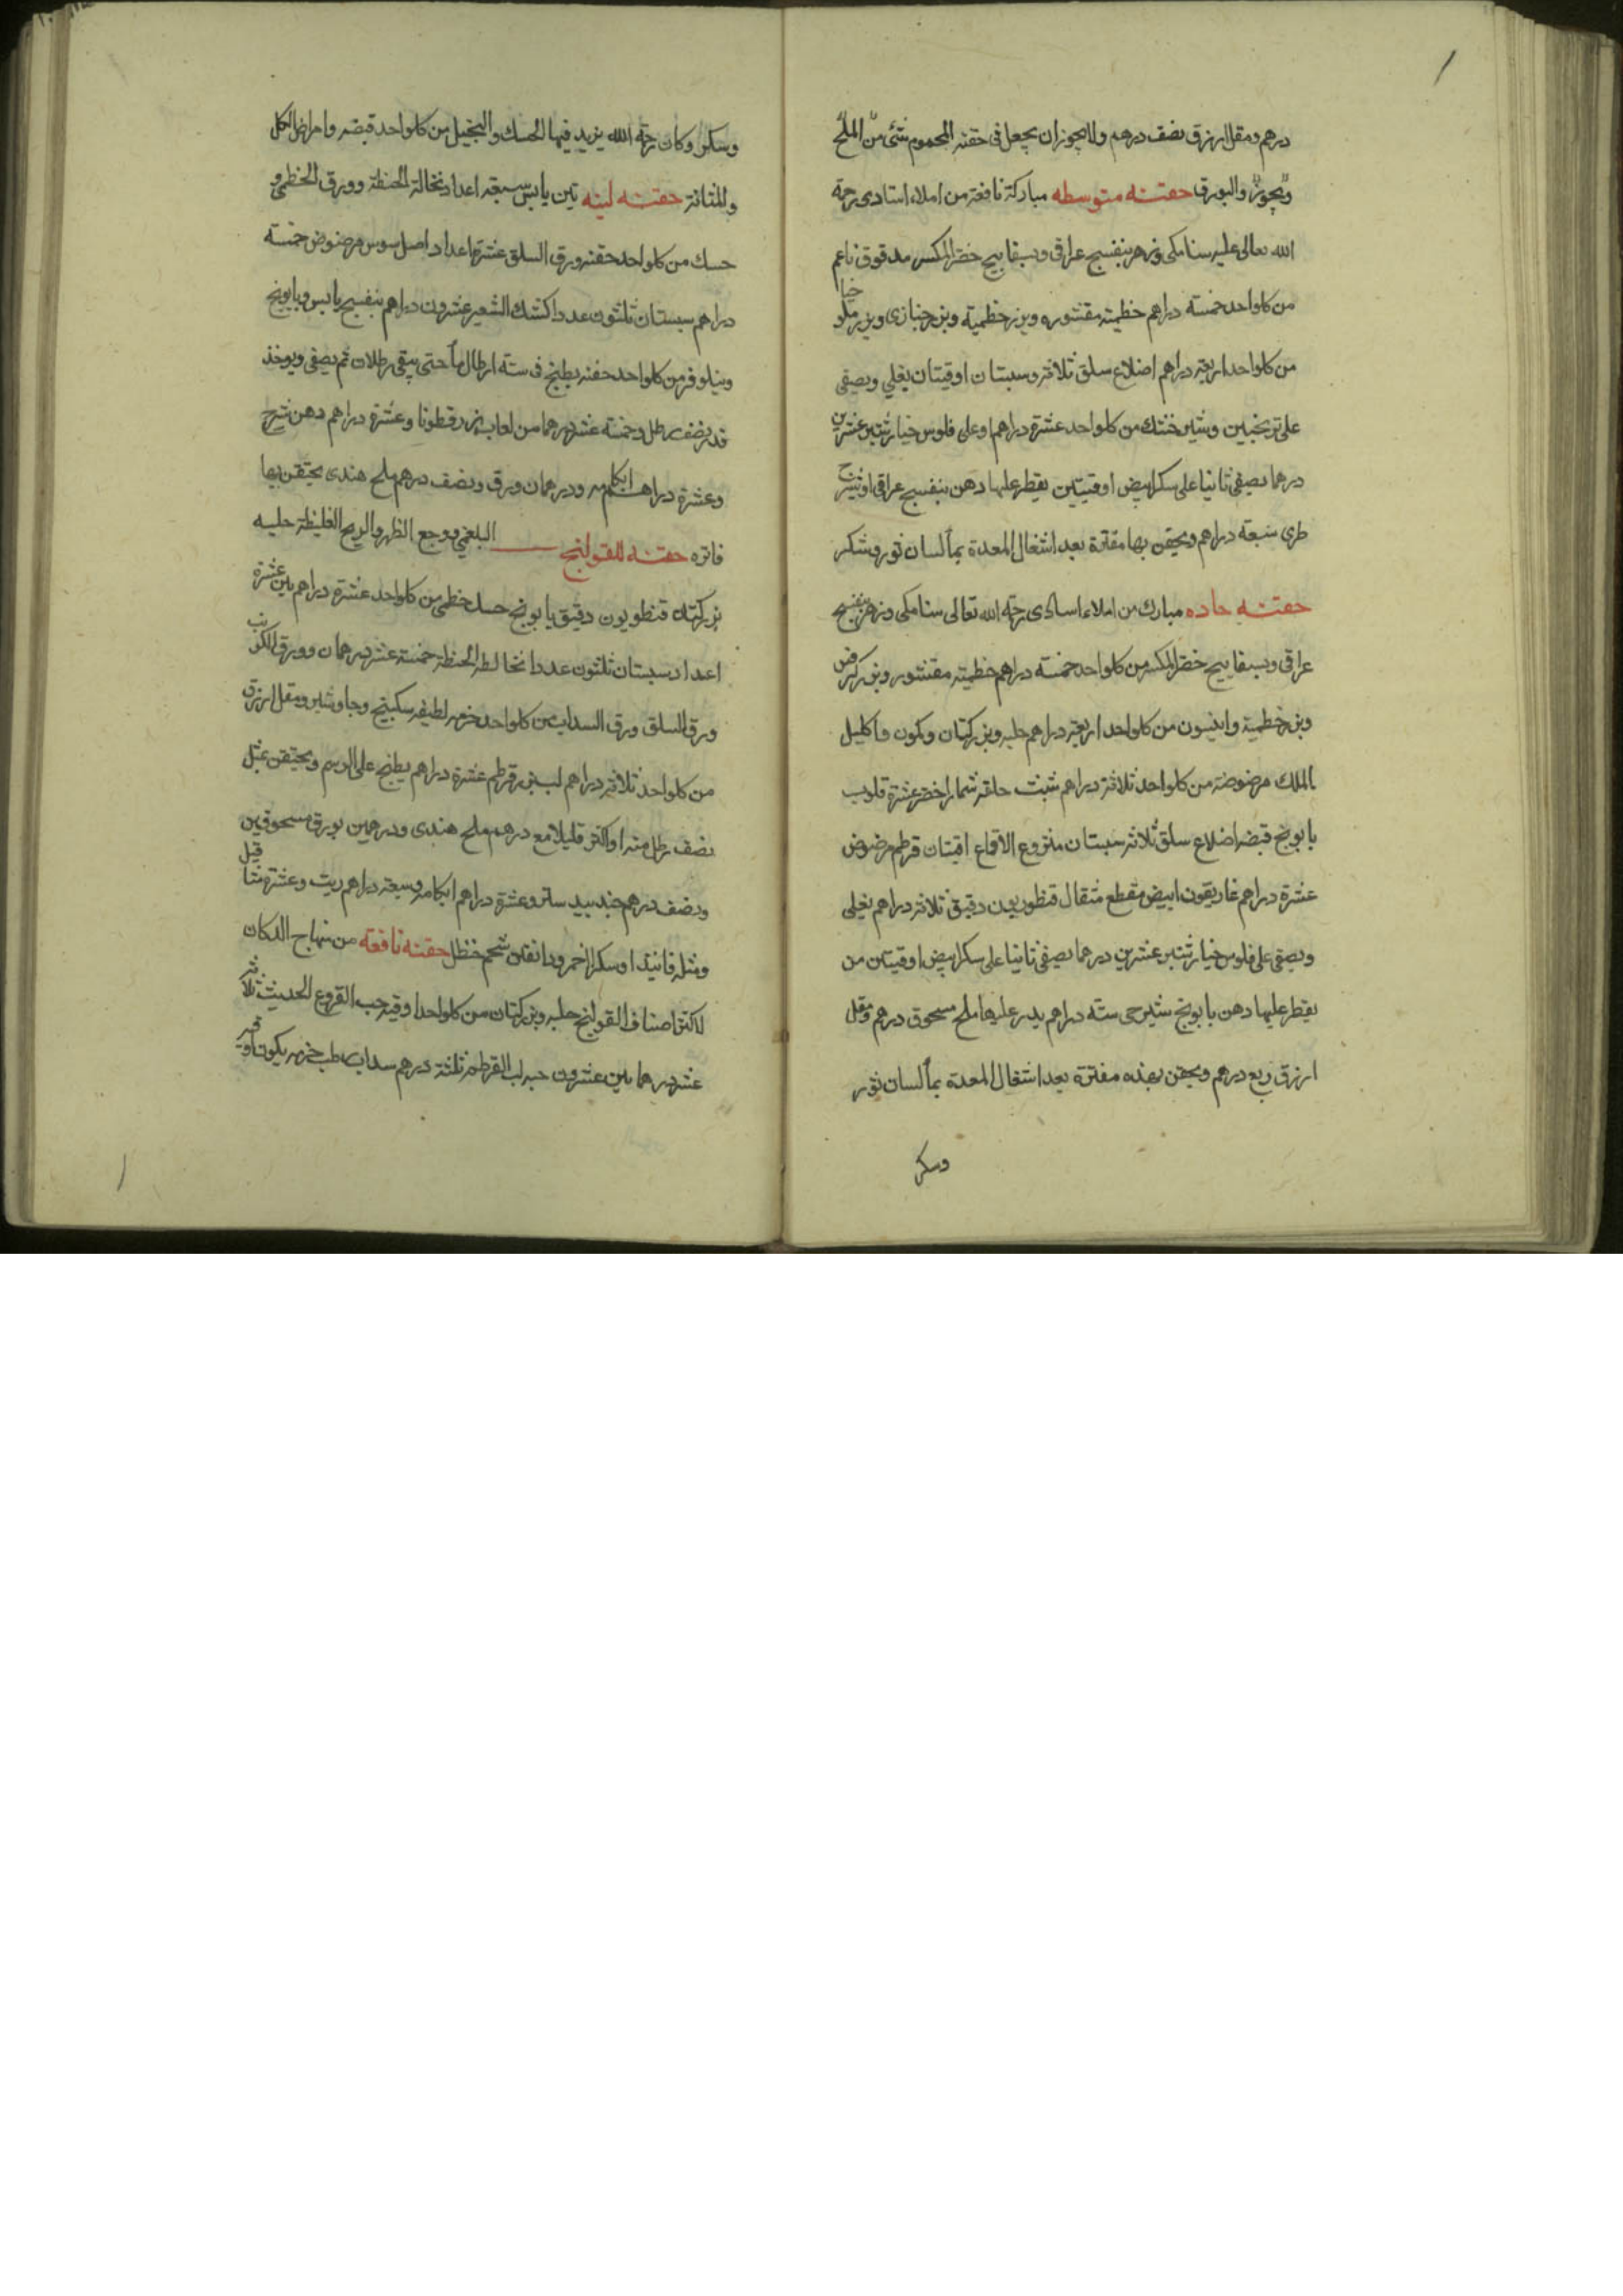 درهم ومقل ازرق نصف درهم ولا يجوز ان يجعل في حقنه المحموم شئ من الملح
ويجوز والبورق حقنه متوسطه مباركة نافعة من املاء استادى رحمة
الله تعالى عليه سنامكى وزهر بنفسج عراقى وبسفايج خضر المكسر مدقوق ناعم
من كلواحد خمسة دراهم خطميه مقشوره وبزر خطمية وبزر خبازى وبزر ملو خيا
من كلواحد اربعه دراهم اضلاع سلق ثلاثه وسبستان اوقيتان يغلي ويصفى
على ترنجبين وشير خشك من كلواحد عشرة دراهم او على فلوس خيار شنبر عشرين
درهما يصفى ثانيا على سكر ابيض اوقيتين يقطر عليها دهن بنفسج عراقى او شيرج
طرى سبعه دراهم ويحقن بها مفاترة بعد اشغال المعدة بما لسان ثور وسكر
حقنه حاده مبارك من املاء اسادى رحمة الله تعالى سنامكى وزهر بنفسج
عراقى وبسفايج خضر المكسر من كلواحد خمسة دراهم خطميه مقشور وبزر كرفس
وبزر خطمية وانيسون من كلواحد اربعه دراهم حلبه وبزر كتان وكمون واكليل
الملك مرضوضه من كلواحد ثلاثة دراهم شبت حلقه شمار اخضر عشرة قلوب
بابونج قبضه اضلاع سلق ثلاثه سبستان منزوع الاقماع اقيتان قرطم مرضوض
عشرة دراهم غاريقون ابيض مقطع مثقال قنطوريون دقيق ثلاثه دراهم يغلى
ويصفى على فلوس خيار شنبر عشرين درهما يصفى ثانيا على سكر ابيض اوقيتين من
يقطر عليها دهن بابونج شيرجى سته دراهم يدر عليها ملح مسحوق درهم ومقل
ازرق ربع درهم ويحقن بهذه مفترة بعد اشغال المعدة بما لسان ثور
وسكر
وسكر وكان رحمة الله يزيد فيها الحسك والنجيل من كلواحد قبضه وامراض الكلى
والمثانة حقنه لينه تين يابس سبعه اعداد نخالة الحنطة وورق الخطمى و
حسك من كلواحد حفنه ورق السلق عشرة اعداد اصل سوس مرضوض خمسة
دراهم سبستان ثلثون عددا كشك الشعير عشرون دراهم بنفسج يابس وبابونج
ونيلوفر من كلواحد حفنه يطبخ فى سته ارطال ما حتى يبقى رطلان ثم يصفى ويوخذ
قدر نصف رطل وخمسة عشر درهما من لعاب بزر قطونا وعشرة دراهم دهن شيرج
وعشرة دراهم ابكامه ودرهمان ورق ونصف درهم ملح هندى يحتقن بها
فاتره حقنه للقولنج البلغمي ووجع الظهر والريح الغليظة حلبه
بزر كتان قنطوريون دقيق بابونج حسك خطمى من كلواحد عشرة دراهم تين عشرة
اعداد سبستان ثلثون عددا نخالطه الحنطة خمسة عشر درهمان وورق الكرنب
ورق السلق ورق السداب من كلواحد حزمه لطيفه سكبينج وجاوشير ومقل ازرق
من كلواحد ثلاثه دراهم لب بزر قرطم عشرة دراهم يطبخ على الرسم ويحتقن بمثل
نصف رطل منه او اكثر قليلا مع درهم ملح هندى ودرهمين بورق مسحوقين
ونصف درهم جندبيد ستر وعشرة دراهم ابكامه وسبعه دراهم زيت وعشرة مثاقيل
ومثله فانيذ او سكر احمر ودانقين شحم حنظل حقنه نافعه من منهاج الدكان
لاكثر اصناف القولنج حلبه وبزر كتان من كلواحد اوقيه حب القروع الحديث ثلاثه
عشر درهما تين عشرون حبه لب القرطم ثلثة درهم سداب رطب حزمه يكون اوقيه